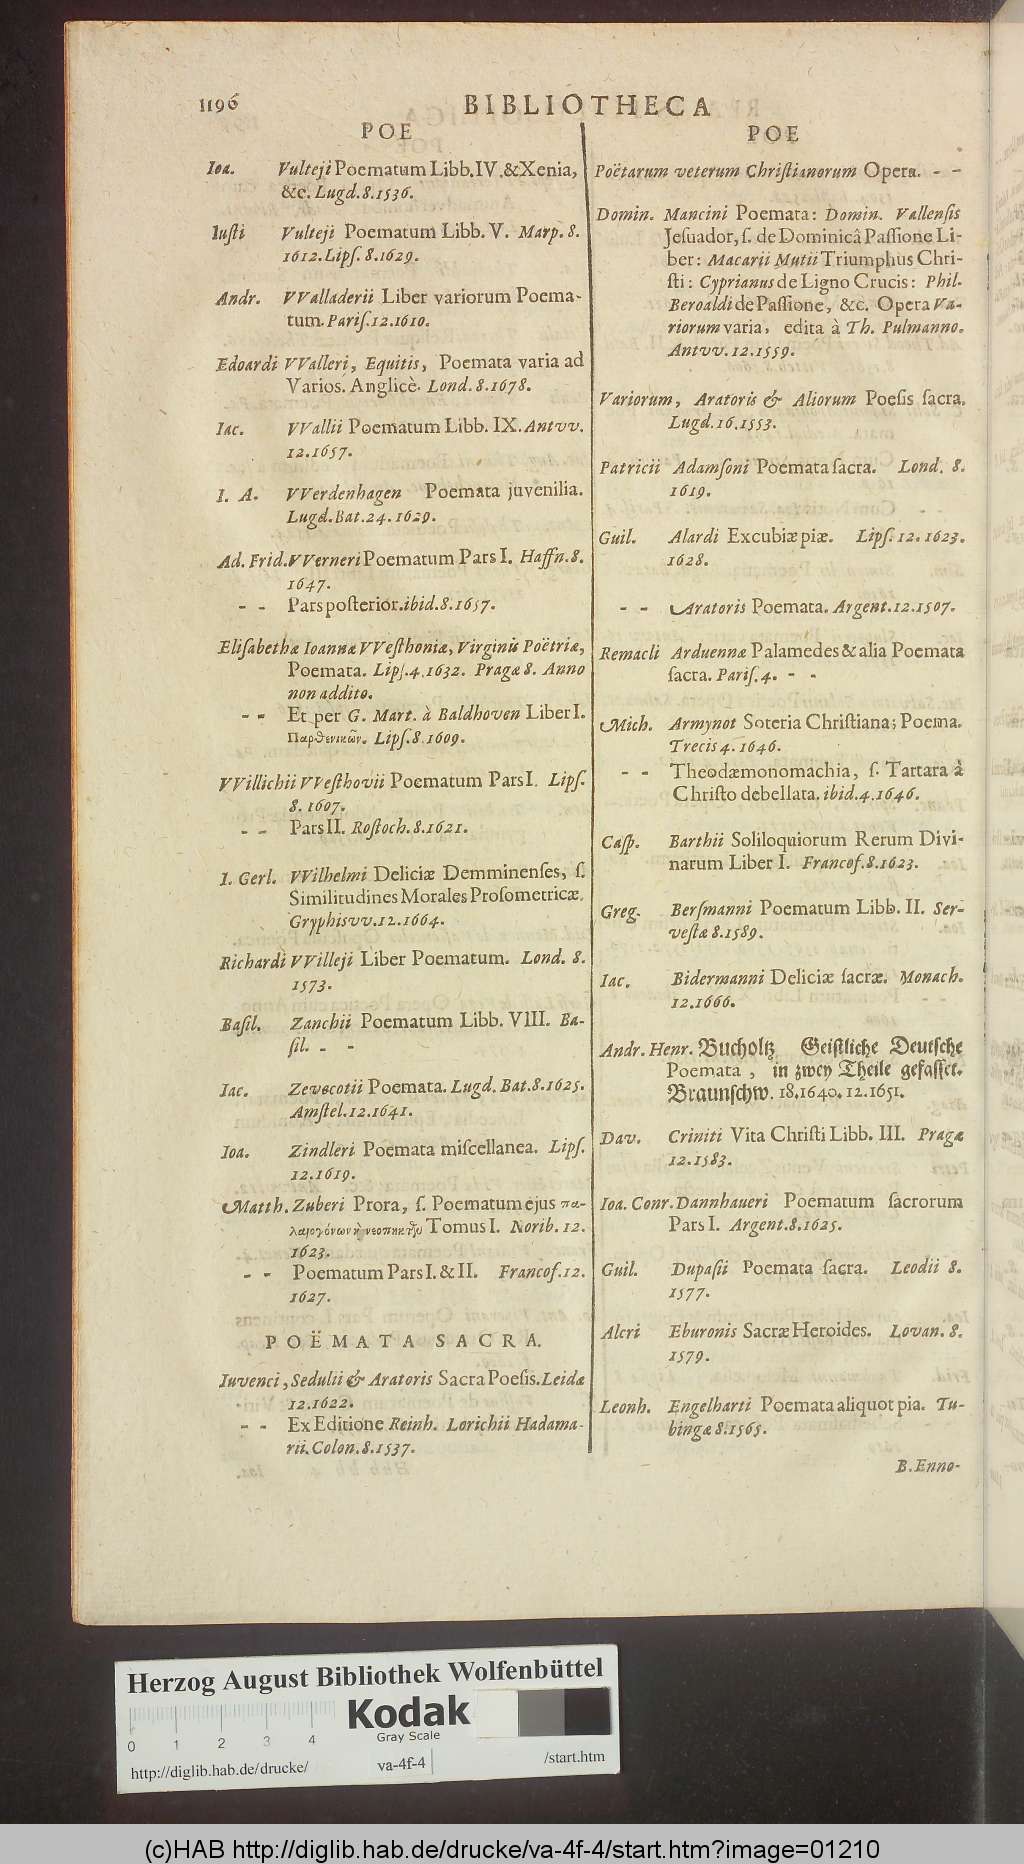 1196
BIBLIOTHECA
POE
Ioa. Vulteji Poematum Libb. IV. & Xenia,
&c. Lugd. 8. 1536.
Iuſti Vulteji Poematum Libb. V. Marp. 8.
1612. Lipſ. 8. 1629.
Andr. VValladerii Liber variorum Poema-
tum. Pariſ. 12. 1610.
Edoardi VValleri, Equitis, Poemata varia ad
Varios. Anglicè. Lond. 8. 1678.
Iac. VVallii Poematum Libb. IX. Antvv.
12. 1657.
I. A. VVerdenhagen Poemata juvenilia.
Lugd. Bat. 24. 1629.
Ad. Frid. VVerneri Poematum Pars I. Haffn. 8.
1647.
- - Pars poſterior. ibid. 8. 1657.
Eliſabethæ Ioannæ VVeſthoniæ, Virginis Poëtriæ,
Poemata. Lipſ. 4. 1632. Pragæ 8. Anno
non addito.
- - Et per G. Mart. à Baldhoven Liber I.
Παρθενικῶν. Lipſ. 8. 1609.
VVillichii VVeſthovii Poematum Pars I. Lipſ.
8. 1607.
- - Pars II. Roſtoch. 8. 1621.
I. Gerl. VVilhelmi Deliciæ Demminenſes, ſ.
Similitudines Morales Proſometricæ.
Gryphisvv. 12. 1664.
Richardi VVilleji Liber Poematum. Lond. 8.
1573.
Baſil. Zanchii Poematum Libb. VIII. Ba-
ſil. - -
Iac. Zevecotii Poemata. Lugd. Bat. 8. 1625.
Amſtel. 12. 1641.
Ioa. Zindleri Poemata miſcellanea. Lipſ.
12. 1619.
Matth. Zuberi Prora, ſ. Poematum ejus πα-
Tomus I. Norib. 12.
1623.
- - Poematum Pars I. & II. Francof. 12.
1627.
POËMATA SACRA.
Iuvenci, Sedulii & Aratoris Sacra Poeſis. Leidæ
12. 1622.
- - Ex Editione Reinh. Lorichii Hadama-
rii. Colon. 8. 1537.
POE
Poëtarum veterum Chriſtianorum Opera. - -
Domin. Mancini Poemata: Domin. Vallenſis
Jeſuador, ſ. de Dominicâ Paſſione Li-
ber: Macarii Mutii Triumphus Chri-
ſti: Cyprianus de Ligno Crucis: Phil.
Beroaldi de Paſſione, &c. Opera Va-
riorum varia, edita à Th. Pulmanno.
Antvv. 12. 1559.
Variorum, Aratoris & Aliorum Poeſis ſacra.
Lugd. 16. 1553.
Patricii Adamſoni Poemata ſacra. Lond. 8.
1619.
Guil. Alardi Excubiæ piæ. Lipſ. 12. 1623.
1628.
- - Aratoris Poemata. Argent. 12. 1507.
Remacli Arduennæ Palamedes & alia Poemata
ſacra. Pariſ. 4. - -
Mich. Armynot Soteria Chriſtiana; Poema.
Trecis 4. 1646.
- - Theodæmonomachia, ſ. Tartara à
Chriſto debellata. ibid. 4. 1646.
Caſp. Barthii Soliloquiorum Rerum Divi-
narum Liber I. Francof. 8. 1623.
Greg. Berſmanni Poematum Libb. II. Ser-
veſtæ 8. 1589.
Iac. Bidermanni Deliciæ ſacræ. Monach.
12. 1666.
Andr. Henr. Bucholtz Geiſtliche Deutſche
Poemata, in zwey Theile gefaſſet.
Braunſchw. 18. 1640. 12. 1651.
Dav. Criniti Vita Chriſti Libb. III. Pragæ
12. 1583.
Ioa. Conr. Dannhaueri Poematum ſacrorum
Pars I. Argent. 8. 1625.
Guil. Dupaſii Poemata ſacra. Leodii 8.
1577.
Alcri Eburonis Sacræ Heroides. Lovan. 8.
1579.
Leonh. Engelharti Poemata aliquot pia. Tu-
bingæ 8. 1565.
B. Enno-
Herzog August Bibliothek Wolfenbüttel
Kodak
Gray Scale
0 1 2 3 4
http://diglib.hab.de/drucke/ va-4f-4 /start.htm
(c)HAB http://diglib.hab.de/drucke/va-4f-4/start.htm?image=01210